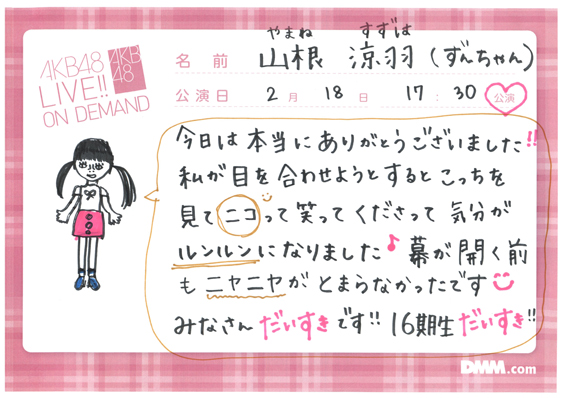 やまね すずは
AKB48 LIVE!! ON DEMAND
AKB48
名前 山根 涼羽(ずんちゃん)
公演日 2月 18日 17:30 公演
今日は本当にありがとうございました!!
私が目を合わせようとするとこっちを
見てニコって笑ってくださって気分が
ルンルンになりました♪幕が開く前
もニヤニヤがとまらなかったです
みなさんだいすきです!!16期生だいすき!!
DMM.com